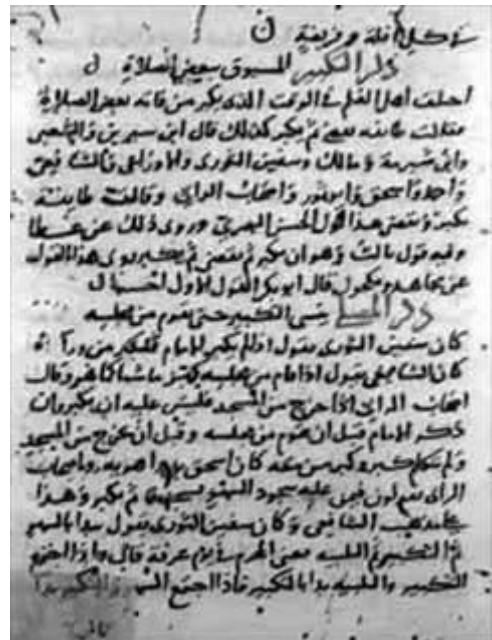 في كل نافلة وفريضة ن
ذكر التكبير المسبوق ببعض الصلاة ن
اختلف اهل العلم في الوقت الذي يكبر من فاته بعض الصلاة
فقالت طائفة يقضي ثم يكبر كذلك قال ابن سيرين والشعبي
وابن شبرمة ومالك وسفين الثوري والاوزاعي والشافعي
واحمد واسحق وابو ثور واصحاب الراي وقالت طائفة
يكبر ثم يقضي هذا قول الحسن البصري وروي ذلك عن عطا
وفيه قول ثالث وهو ان يكبر ثم يقضي ثم يكبر روي هذا القول
عن مجاهد ومكحول قال ابو بكر القول الاول احب الي ن
ذكر ينسى التكبير حتى يقوم من مجلسه
كان سفين الثوري يقول اذا لم يكبر الامام فليكبر من وراه
كان الشافعي يقول اذا قام من مجلسه كبر ماشيا كما هو وقال
اصحاب الراي اذا خرج من المسجد فليس عليه ان يكبر وان
ذكر الامام قبل ان يقوم من مجلسه وقبل ان يخرج من المسجد
ولم يتكلم كبر وكبر من معه كان اسحق واصحاب
الراي يقولون فيمن عليه سجود السهو ثم يكبر وهذا
مذهب الشافعي وكان سفين الثوري يقول يبدا بالسهو
ثم التكبير ثم التلبية يعني المحرم يوم عرفة قال واذا اجتمع
التكبير والتلبية بدا بالتكبير فاذا اجتمع السهو والتكبير بدا